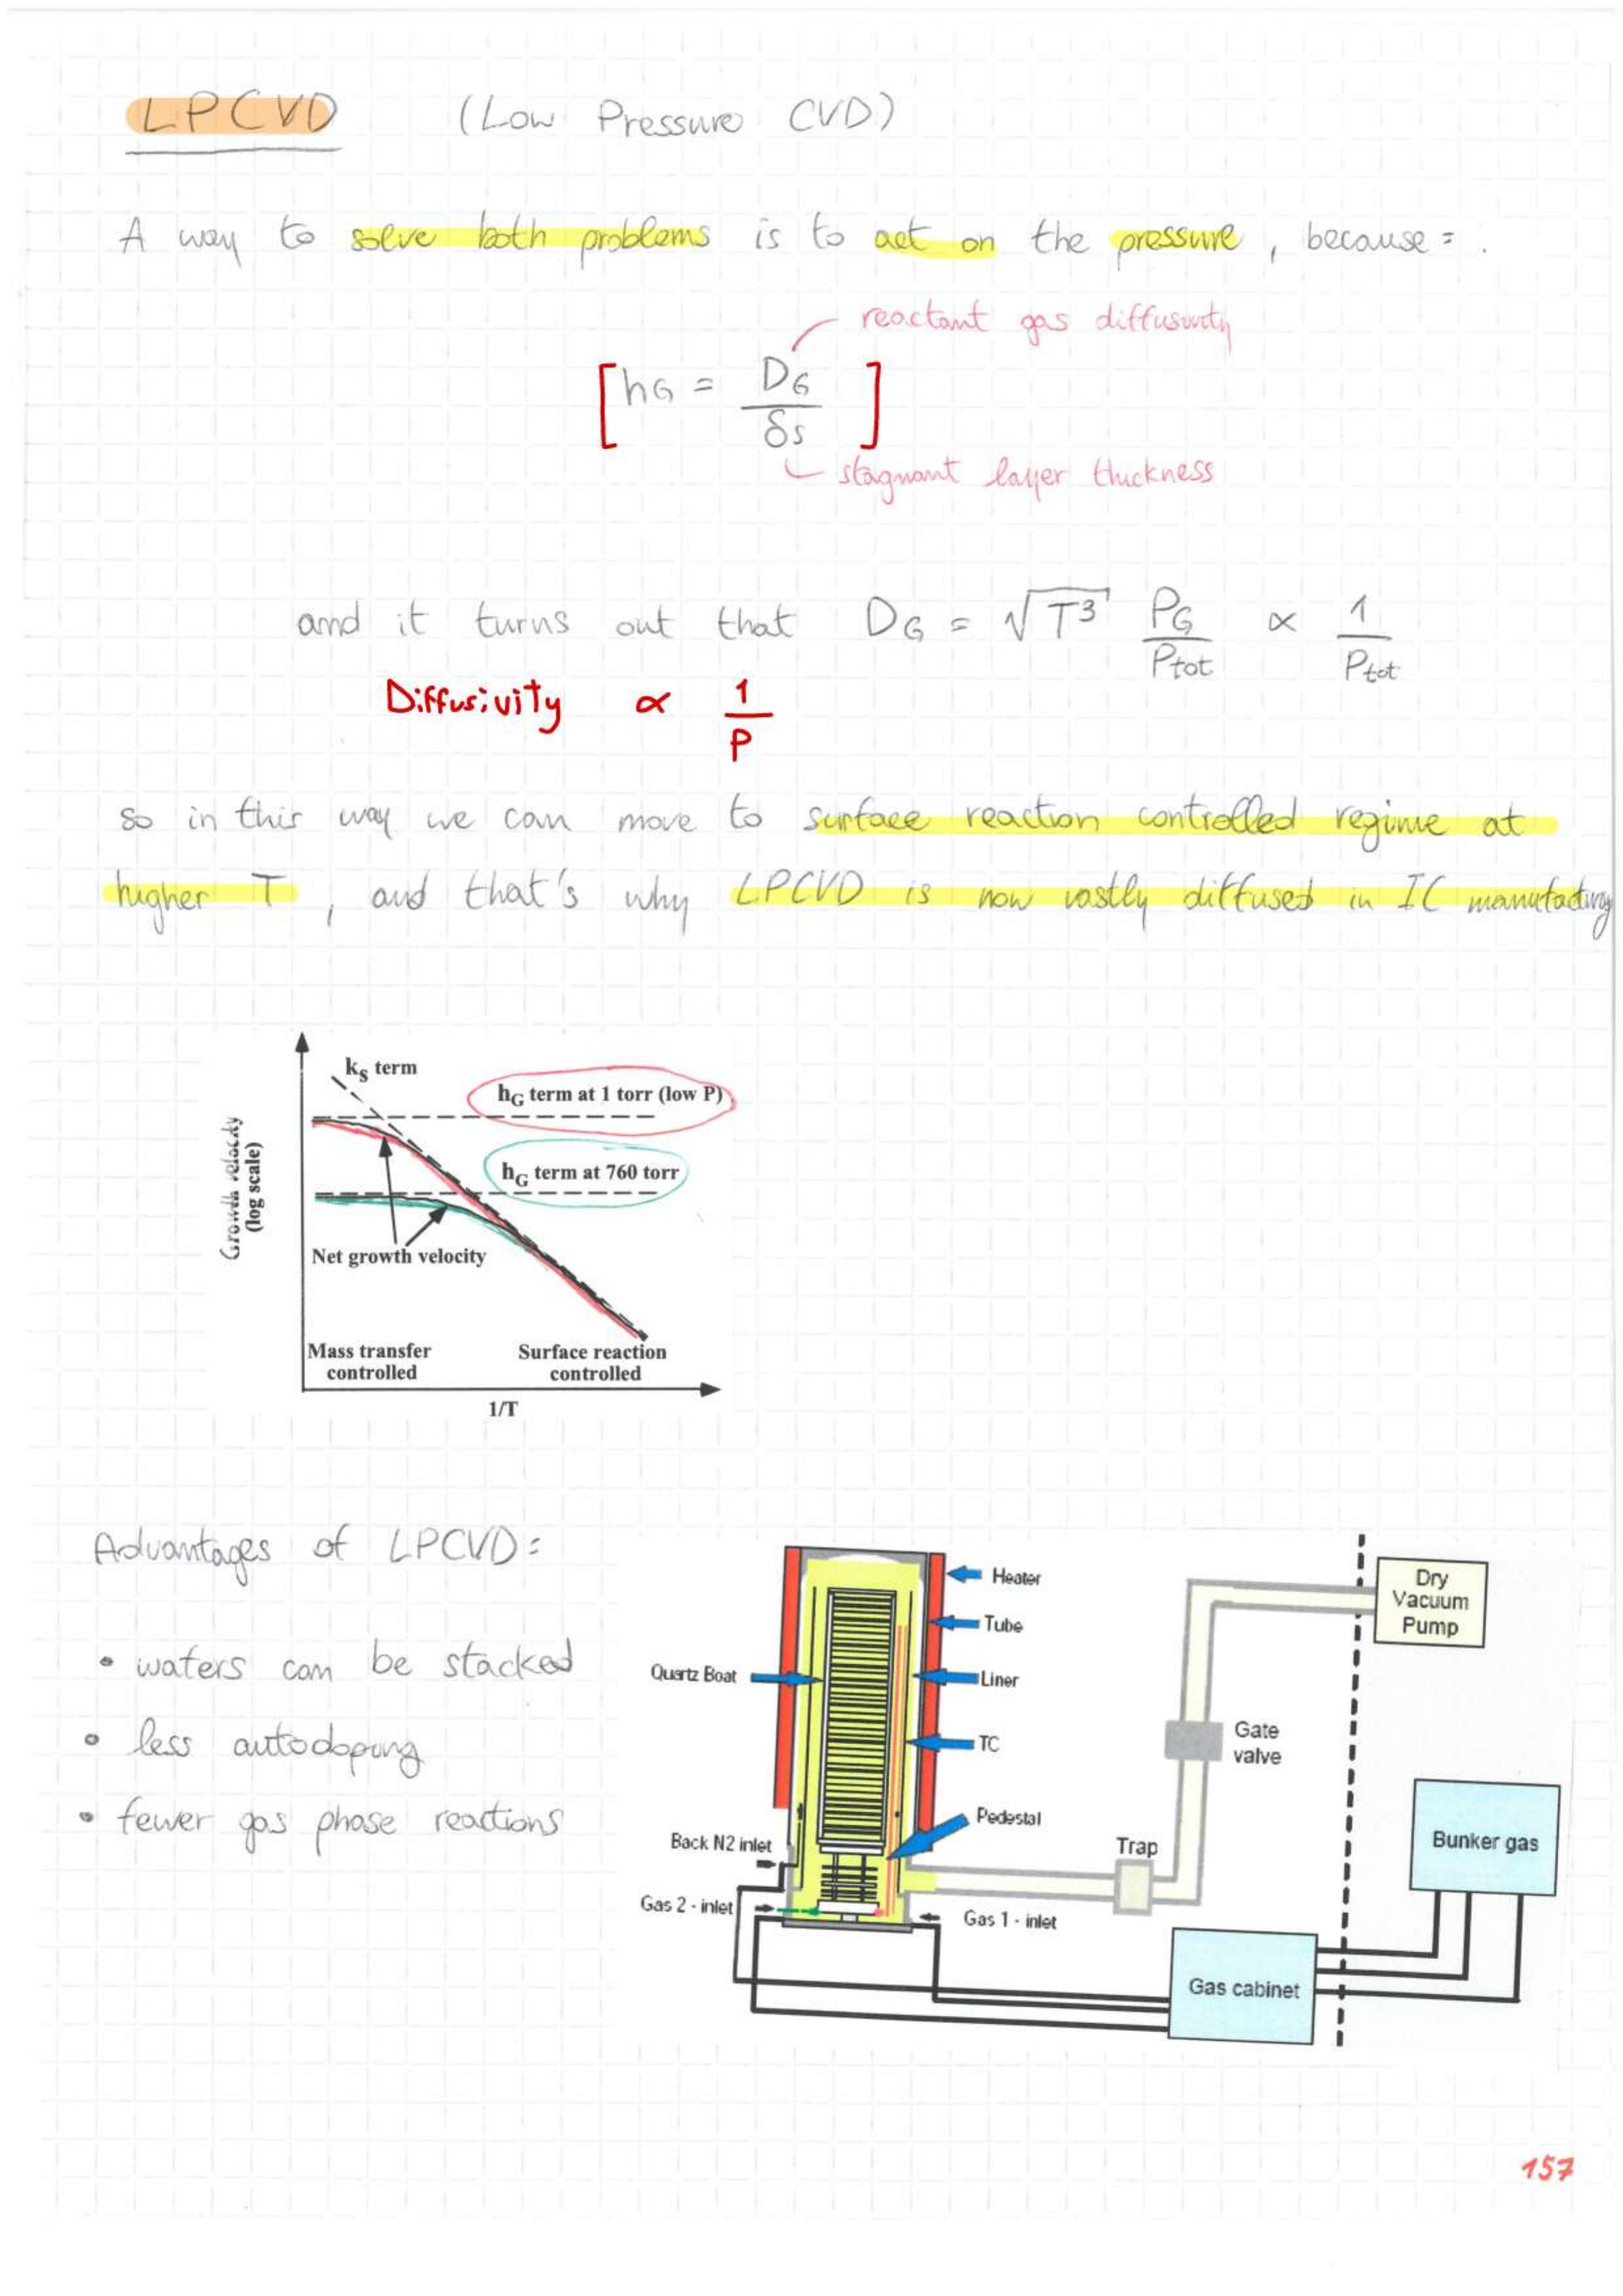 LPCVD (Low Pressure CVD)
A way to solve both problems is to act on the pressure, because = .
reactant gas diffusivity
[hG = DG / δs]
stagnant layer thickness
and it turns out that DG = √T³ PG / Ptot ∝ 1 / Ptot
Diffusivity ∝ 1 / P
so in this way we can move to surface reaction controlled regime at
higher T, and that's why LPCVD is now vastly diffused in IC manufacturing
kS term
hG term at 1 torr (low P)
hG term at 760 torr
Growth velocity
(log scale)
Net growth velocity
Mass transfer
controlled
Surface reaction
controlled
1/T
Advantages of LPCVD:
• wafers can be stacked
• less autodoping
• fewer gas phase reactions
Heater
Tube
Quartz Boat
Liner
TC
Pedestal
Back N2 inlet
Gas 2 - inlet
Gas 1 - inlet
Trap
Gate
valve
Dry
Vacuum
Pump
Bunker gas
Gas cabinet
157